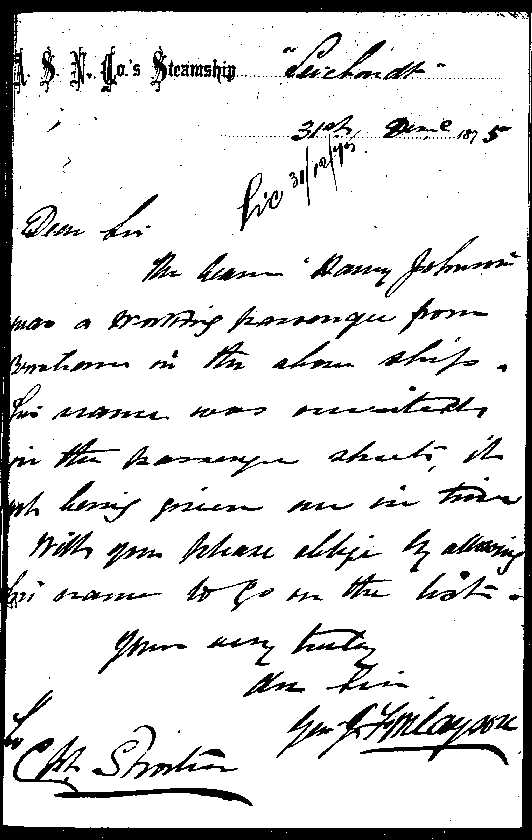 A. S. N. Co.'s Steamship "Leichardt"
31st Dec 1875
31/12/75
Dear Sir
The bearer Harry Johnson
was a working passenger from
Brisbane in the above ship.
his name was omitted
in the passenger sheets, it
not being given me in time
Will you please oblige by allowing
his name to go on the list.
Yours very truly
Geo. J. Finlayson
To